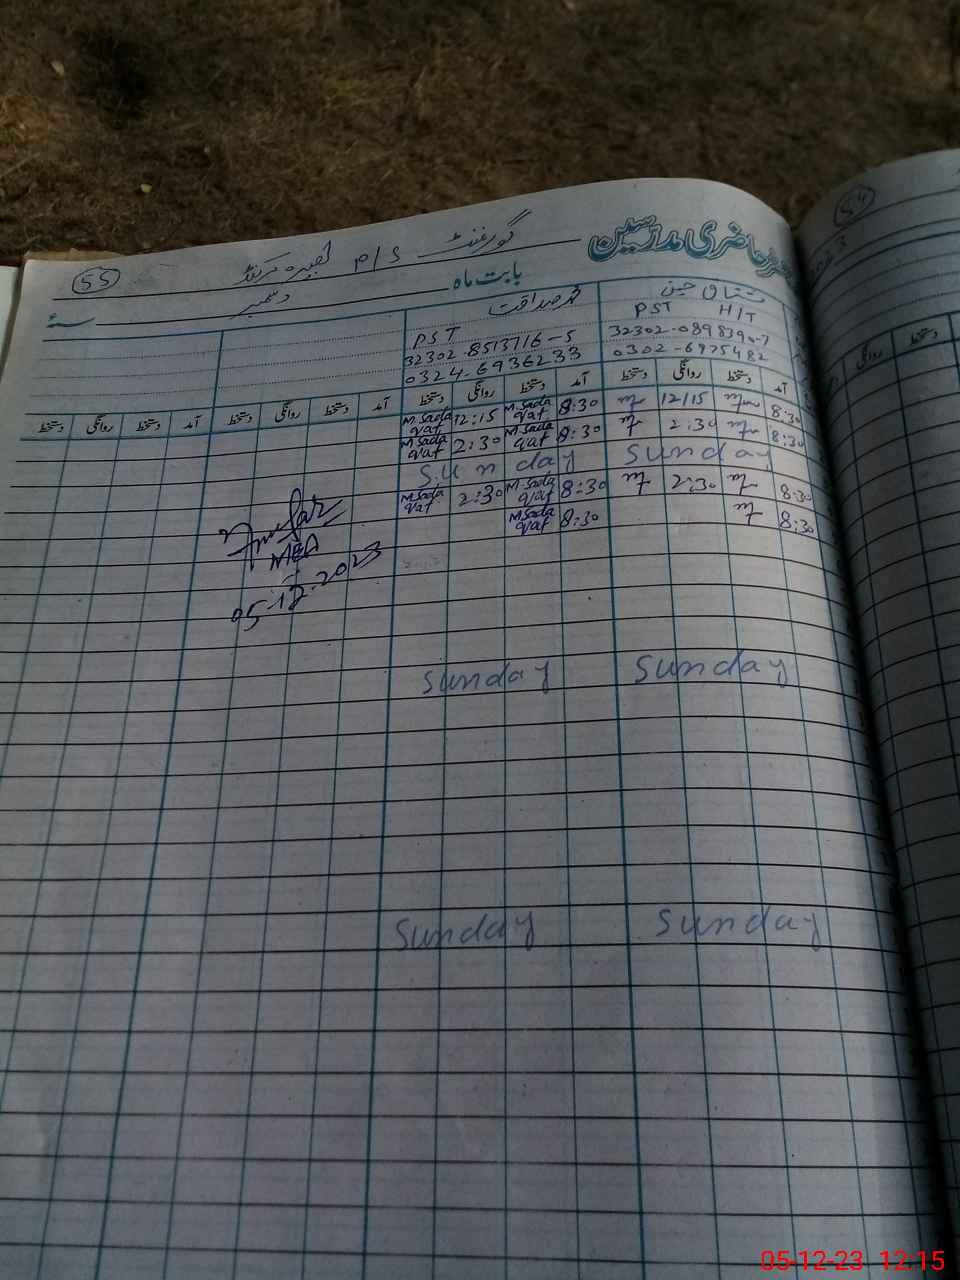 حاضری مدرسین
گورنمنٹ P/S
55
54
بابت ماہ دسمبر
سنہ
محمد صداقت
PST
32302-8513716-5
0324-6936233
PST H/T
32302-0898390-7
0302-6975482
آمد دستخط روانگی دستخط آمد دستخط روانگی دستخط آمد دستخط روانگی دستخط آمد دستخط روانگی دستخط
8:30 12/15 8:30 M.Sada qat 12:15 M.Sada qat
8:30 2:30 8:30 M.Sada qat 2:30 M.Sada qat
Sunday Sunday
8:30 2:30 8:30 M.Sada qat 2:30 M.Sada qat
8:30 8:30 M.Sada qat
MEA
05-12-2023
Sunday Sunday
Sunday Sunday
روانگی دستخط
05-12-23 12:15